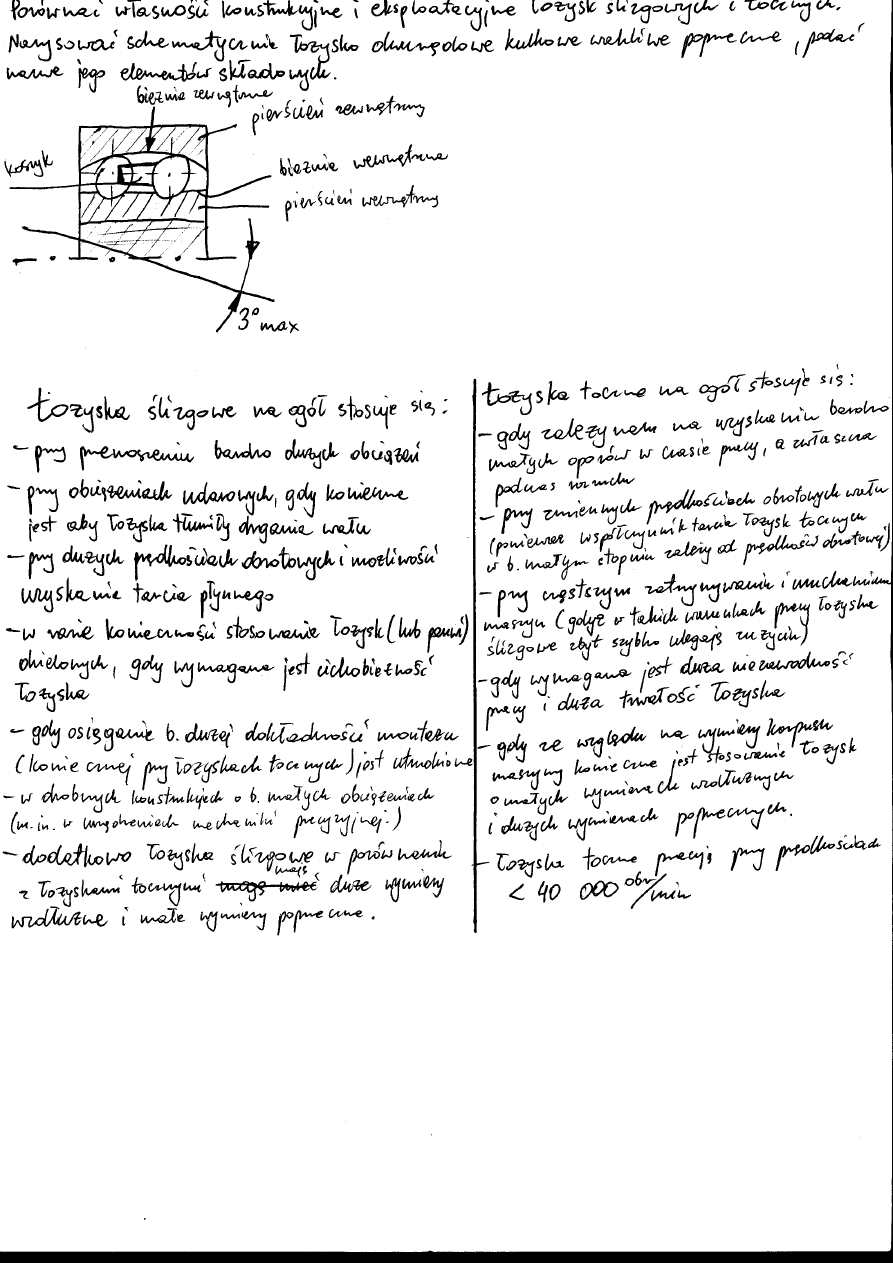 Porównać własności konstrukcyjne i eksploatacyjne łożysk ślizgowych i tocznych.
Narysować schematycznie łożysko dwurzędowe kulkowe wahliwe poprzeczne, podać
nazwę jego elementów składowych.
bieżnia zewnętrzna
pierścień zewnętrzny
koszyk
bieżnia wewnętrzna
pierścień wewnętrzny
3° max
Łożyska ślizgowe na ogół stosuje się:
- przy przenoszeniu bardzo dużych obciążeń
- przy obciążeniach udarowych, gdy konieczne
jest aby łożyska tłumiły drgania wału
- przy dużych prędkościach obrotowych i możliwości
uzyskania tarcia płynnego
- w razie konieczności stosowania łożysk (lub panwi)
dzielonych, gdy wymagana jest cichobieżność
łożyska
- gdy osiąganie b. dużej dokładności montażu
(koniecznej przy łożyskach tocznych) jest utrudnione
- w drobnych konstrukcjach o b. małych obciążeniach
(m.in. w urządzeniach mechaniki precyzyjnej.)
- dodatkowo łożyska ślizgowe w porównaniu
z łożyskami tocznymi mają duże wymiary
wzdłużne i małe wymiary poprzeczne.
Łożyska toczne na ogół stosuje się:
- gdy zależy nam na uzyskaniu bardzo
małych oporów w czasie pracy, a zwłaszcza
podczas rozruchu
- przy zmiennych prędkościach obrotowych wału
(ponieważ współczynnik tarcia łożysk tocznych
w b. małym stopniu zależy od prędkości obrotowej)
- przy częstszym zatrzymywaniu i uruchamianiu
maszyn (gdyż w takich warunkach pracy łożyska
ślizgowe zbyt szybko ulegają zużyciu)
- gdy wymagana jest duża niezawodność
pracy i duża trwałość łożyska
- gdy ze względu na wymiary korpusu
maszyny konieczne jest stosowanie łożysk
o małych wymiarach wzdłużnych
i dużych wymiarach poprzecznych.
- łożyska toczne pracują przy prędkościach
< 40 000 obr/min